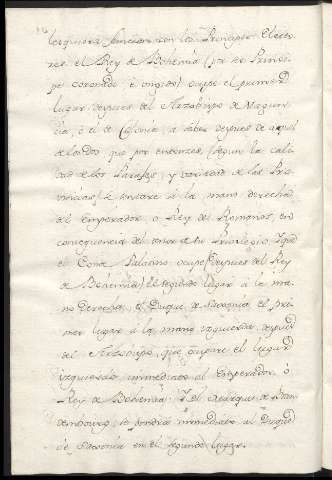 lesquiera funcion con los Principes Electo-
res el Rey de Bohemia (por ser Princi-
pe coronado è ungido) ocupe el primer
lugar despues del Arzobispo de Magun-
cia, ò el de Colonia, a saber despues de aquel
de los dos, que por entonces (segun la cali-
dad de los Parages, y variedad de las Pro-
vincias) se sentare á la mano derecha
del Emperador, o Rey de Romanos, en
consequencia del tenor de su Privilegio. Y que
el Conde Palatino ocupe (despues del Rey
de Bohemia) el segundo lugar à la ma-
no derecha; el Duque de Saxonia el pri-
mer lugar á la mano izquierda despues
del Arzobispo, que ocupare el lugar
izquierdo immediato al Emperador, ò
Rey de Bohemia; Y el Marques de Bran-
demburg, se pondrá immediato al Duque
de Saxonia en el segundo lugar.